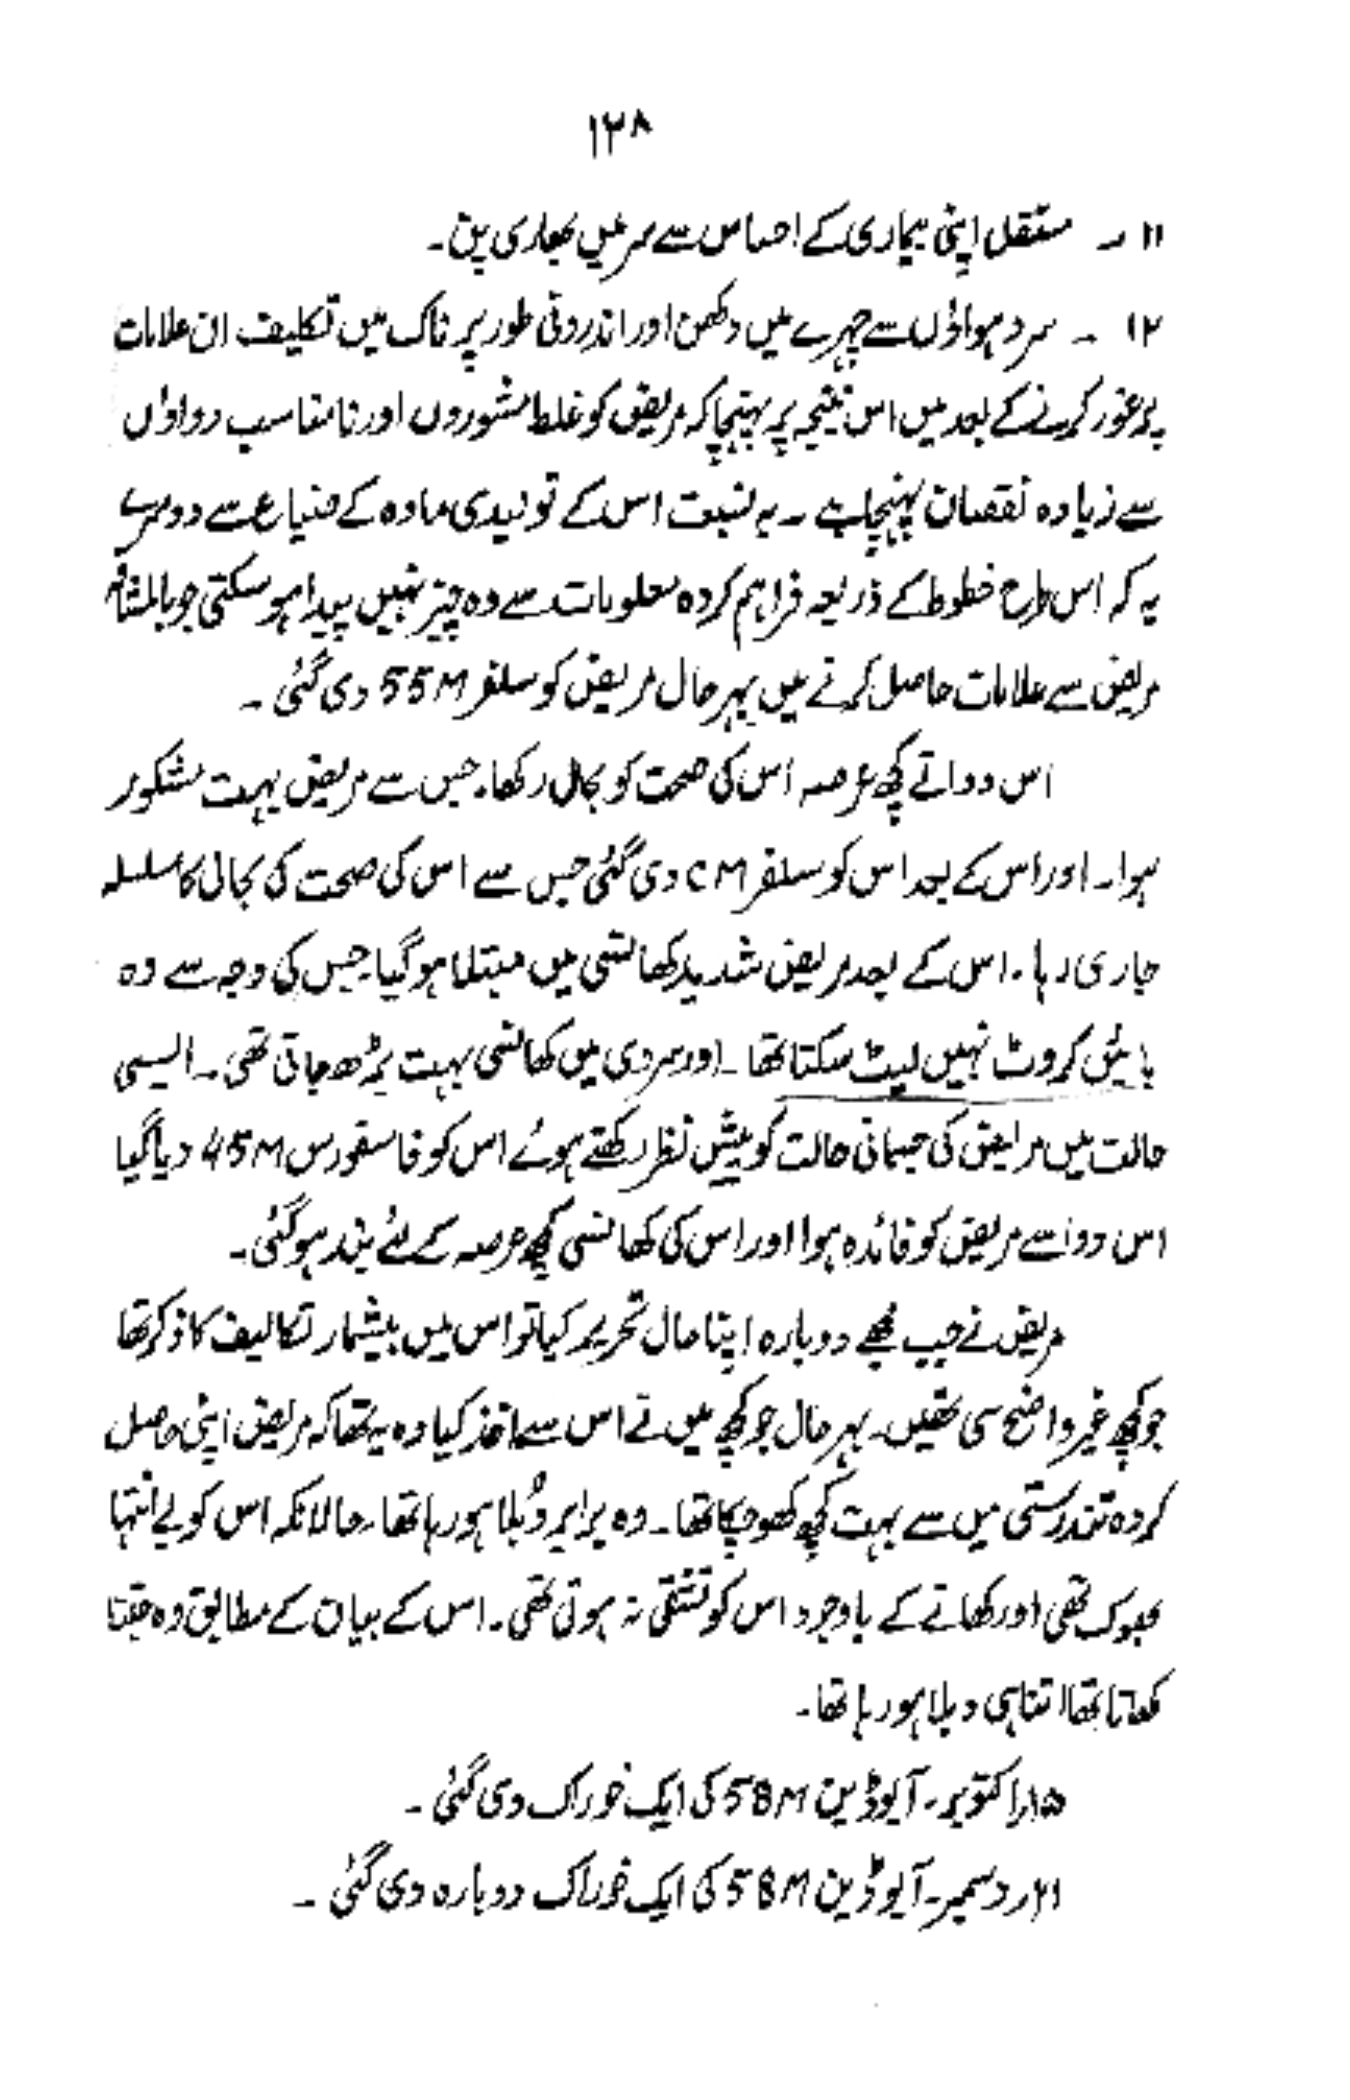 ۱۲۸
۱۱ ۔ مستقل اپنی بیماری کے احساس سے سر میں بھاری پن۔
۱۲ ۔ سرد ہواؤں سے چہرے میں دکھن اور اندرونی طور پر ناک میں تکلیف ان علامات
پر غور کرنے کے بعد میں اس نتیجہ پر پہنچا کہ مریض کو غلط مشوروں اور نامناسب دواؤں
سے زیادہ نقصان پہنچا ہے ۔ بہ نسبت اس کے تولیدی مادہ کے ضیاع سے دوسرے
یہ کہ اس طرح خطوط کے ذریعہ فراہم کردہ معلومات سے وہ چیز نہیں پیدا ہو سکتی جو بالمشافہ
مریض سے علامات حاصل کرنے میں بہر حال مریض کو سلفر 55M دی گئی ۔
اس دوا نے کچھ عرصہ اس کی صحت کو بحال رکھا۔ جس سے مریض بہت مشکور
ہوا۔ اور اس کے بعد اس کو سلفر CM دی گئی جس سے اس کی صحت کی بحالی کا سلسلہ
جاری رہا ۔ اس کے بعد مریض شدید کھانسی میں مبتلا ہو گیا۔ جس کی وجہ سے وہ
بائیں کروٹ نہیں لیٹ سکتا تھا ۔ اور سردی میں کھانسی بہت بڑھ جاتی تھی ۔ ایسی
حالت میں مریض کی جسمانی حالت کو پیش نظر رکھتے ہوئے اس کو فاسفورس 45M دیا گیا
اس دوا سے مریض کو فائدہ ہوا اور اس کی کھانسی کچھ عرصہ کے لئے بند ہو گئی۔
مریض نے جب مجھے دوبارہ اپنا حال تحریر کیا تو اس میں بیشمار تکالیف کا ذکر تھا
جو کچھ غیر واضح سی تھیں۔ بہر حال جو کچھ میں نے اس سے اخذ کیا وہ یہ تھا کہ مریض اپنی حاصل
کردہ تندرستی میں سے بہت کچھ کھو چکا تھا ۔ وہ برابر دُبلا ہو رہا تھا ۔ حالانکہ اس کو بے انتہا
بھوک تھی اور کھانے کے باوجود اس کو تشفی نہ ہوتی تھی ۔ اس کے بیان کے مطابق وہ جتنا
کھاتا تھا اتنا ہی دبلا ہو رہا تھا۔
۱۵ر اکتوبر۔ آیوڈین 58M کی ایک خوراک دی گئی ۔
۲۱ر دسمبر۔ آیوڈین 58M کی ایک خوراک دوبارہ دی گئی ۔